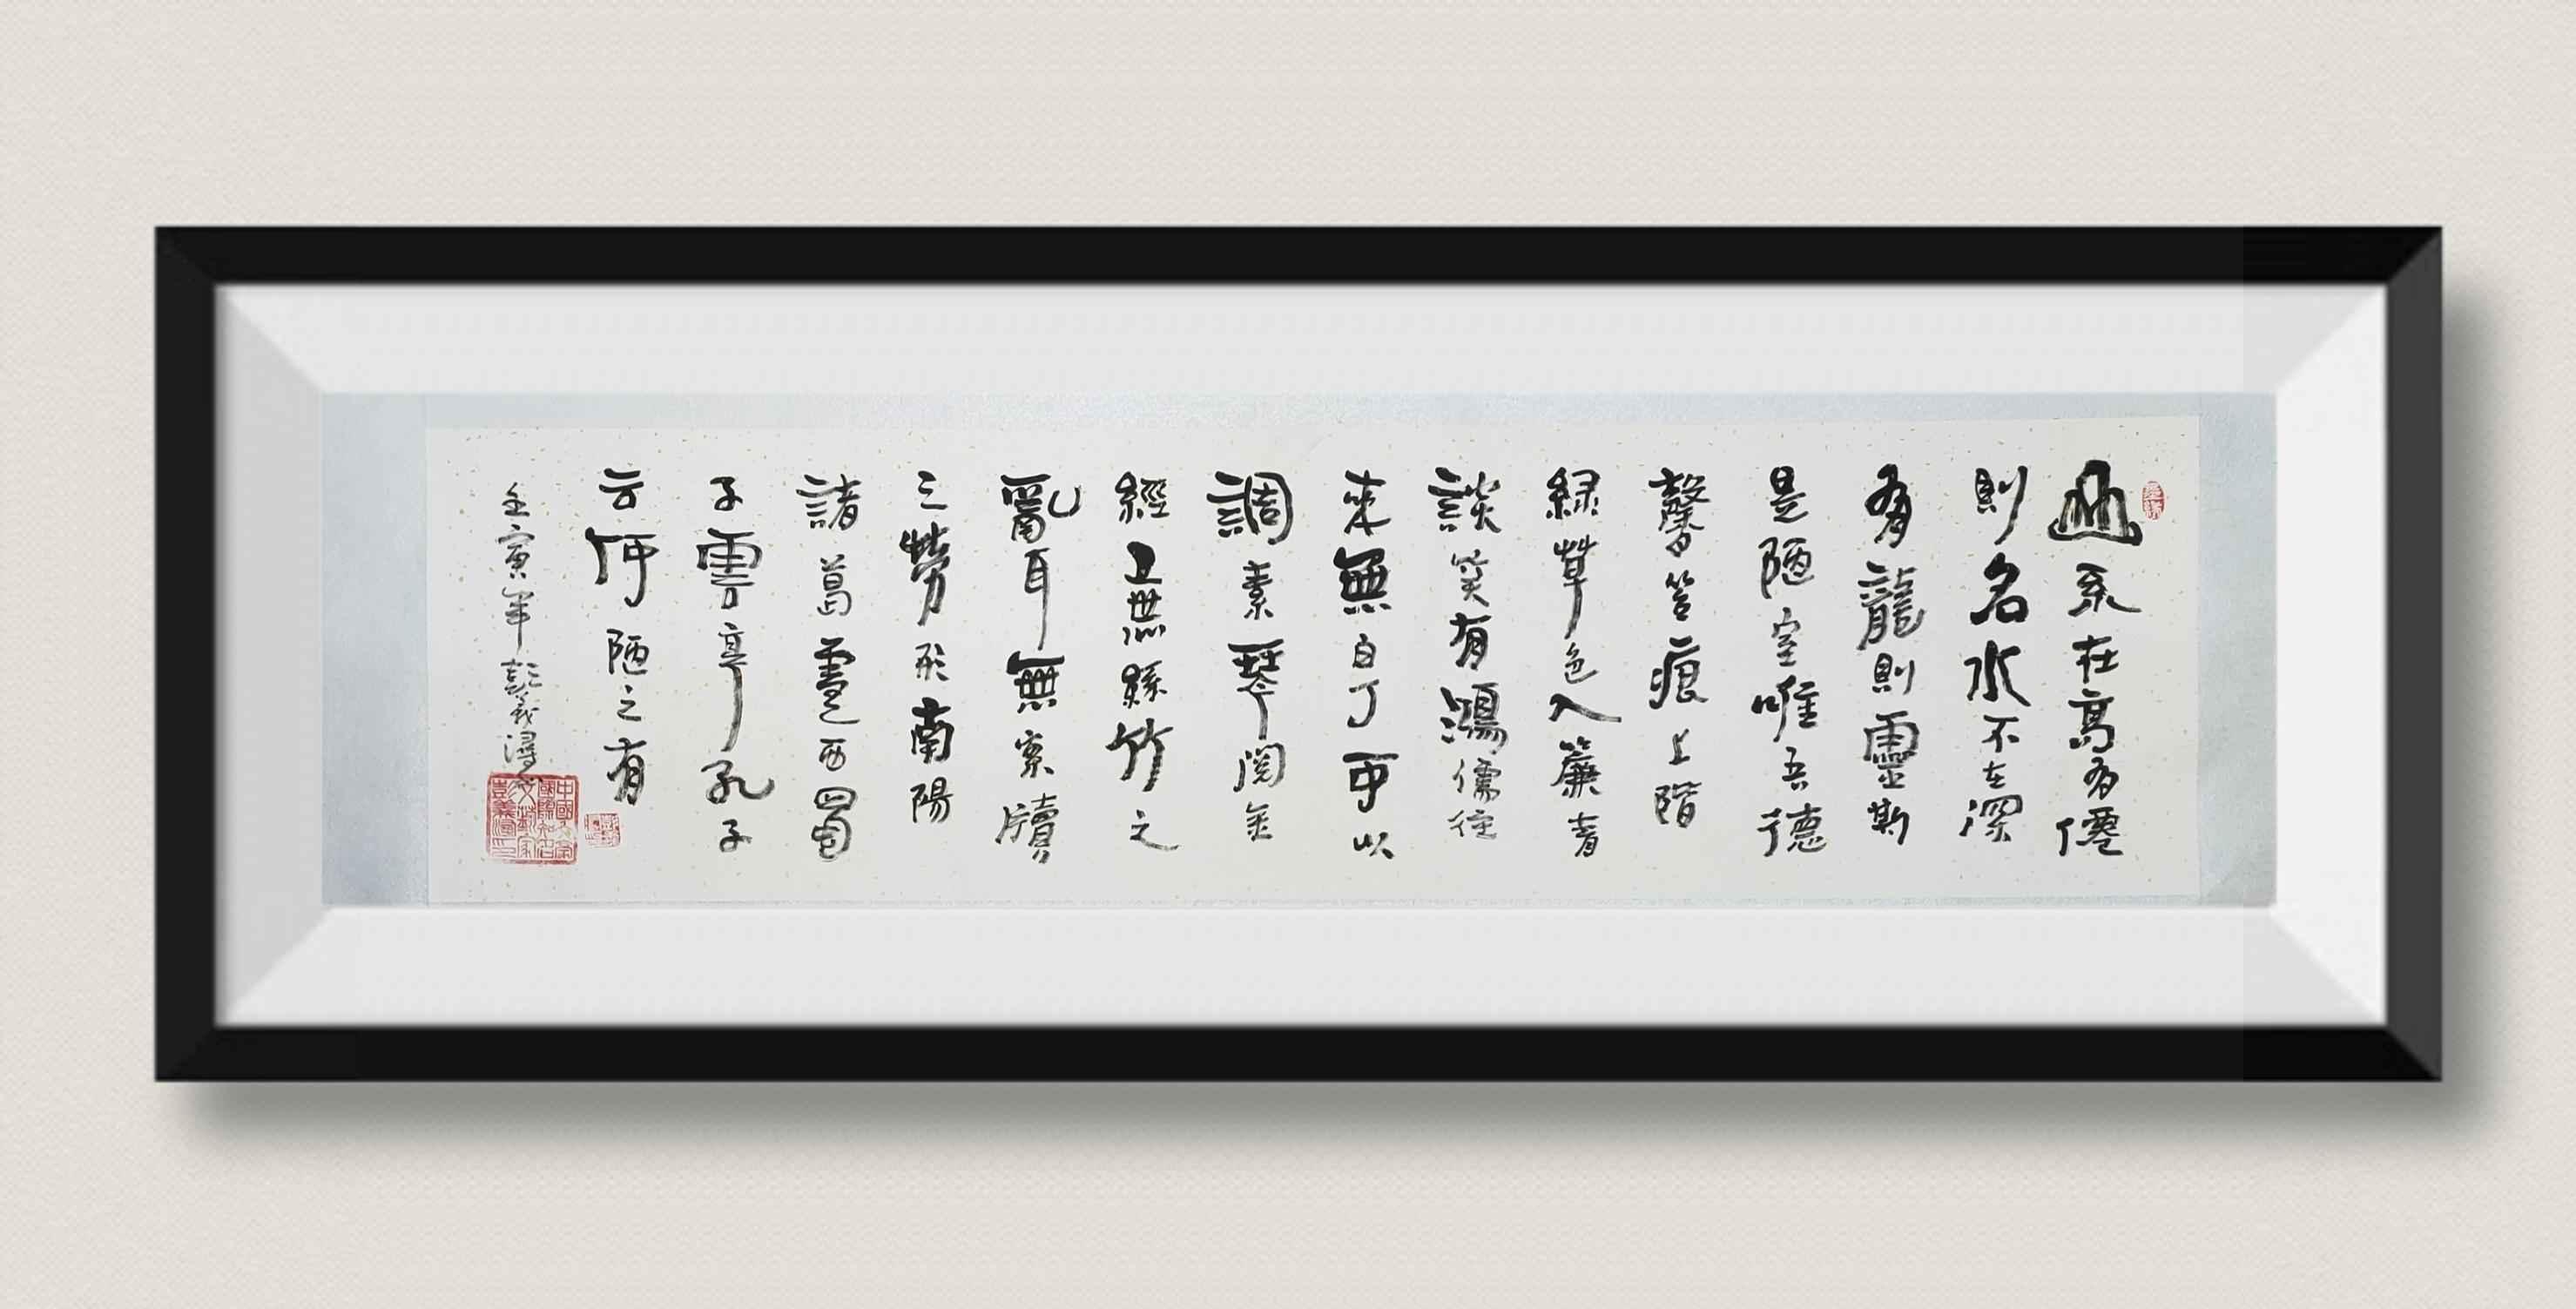 山不在高有僊
則名水不在深
有龍則靈斯
是陋室唯吾德
馨苔痕上階
綠草色入簾青
談笑有鴻儒往
來無白丁可以
調素琴閱金
經無絲竹之
亂耳無案牘
之勞形南陽
諸葛廬西蜀
子雲亭孔子
云何陋之有
壬寅年彭義潯